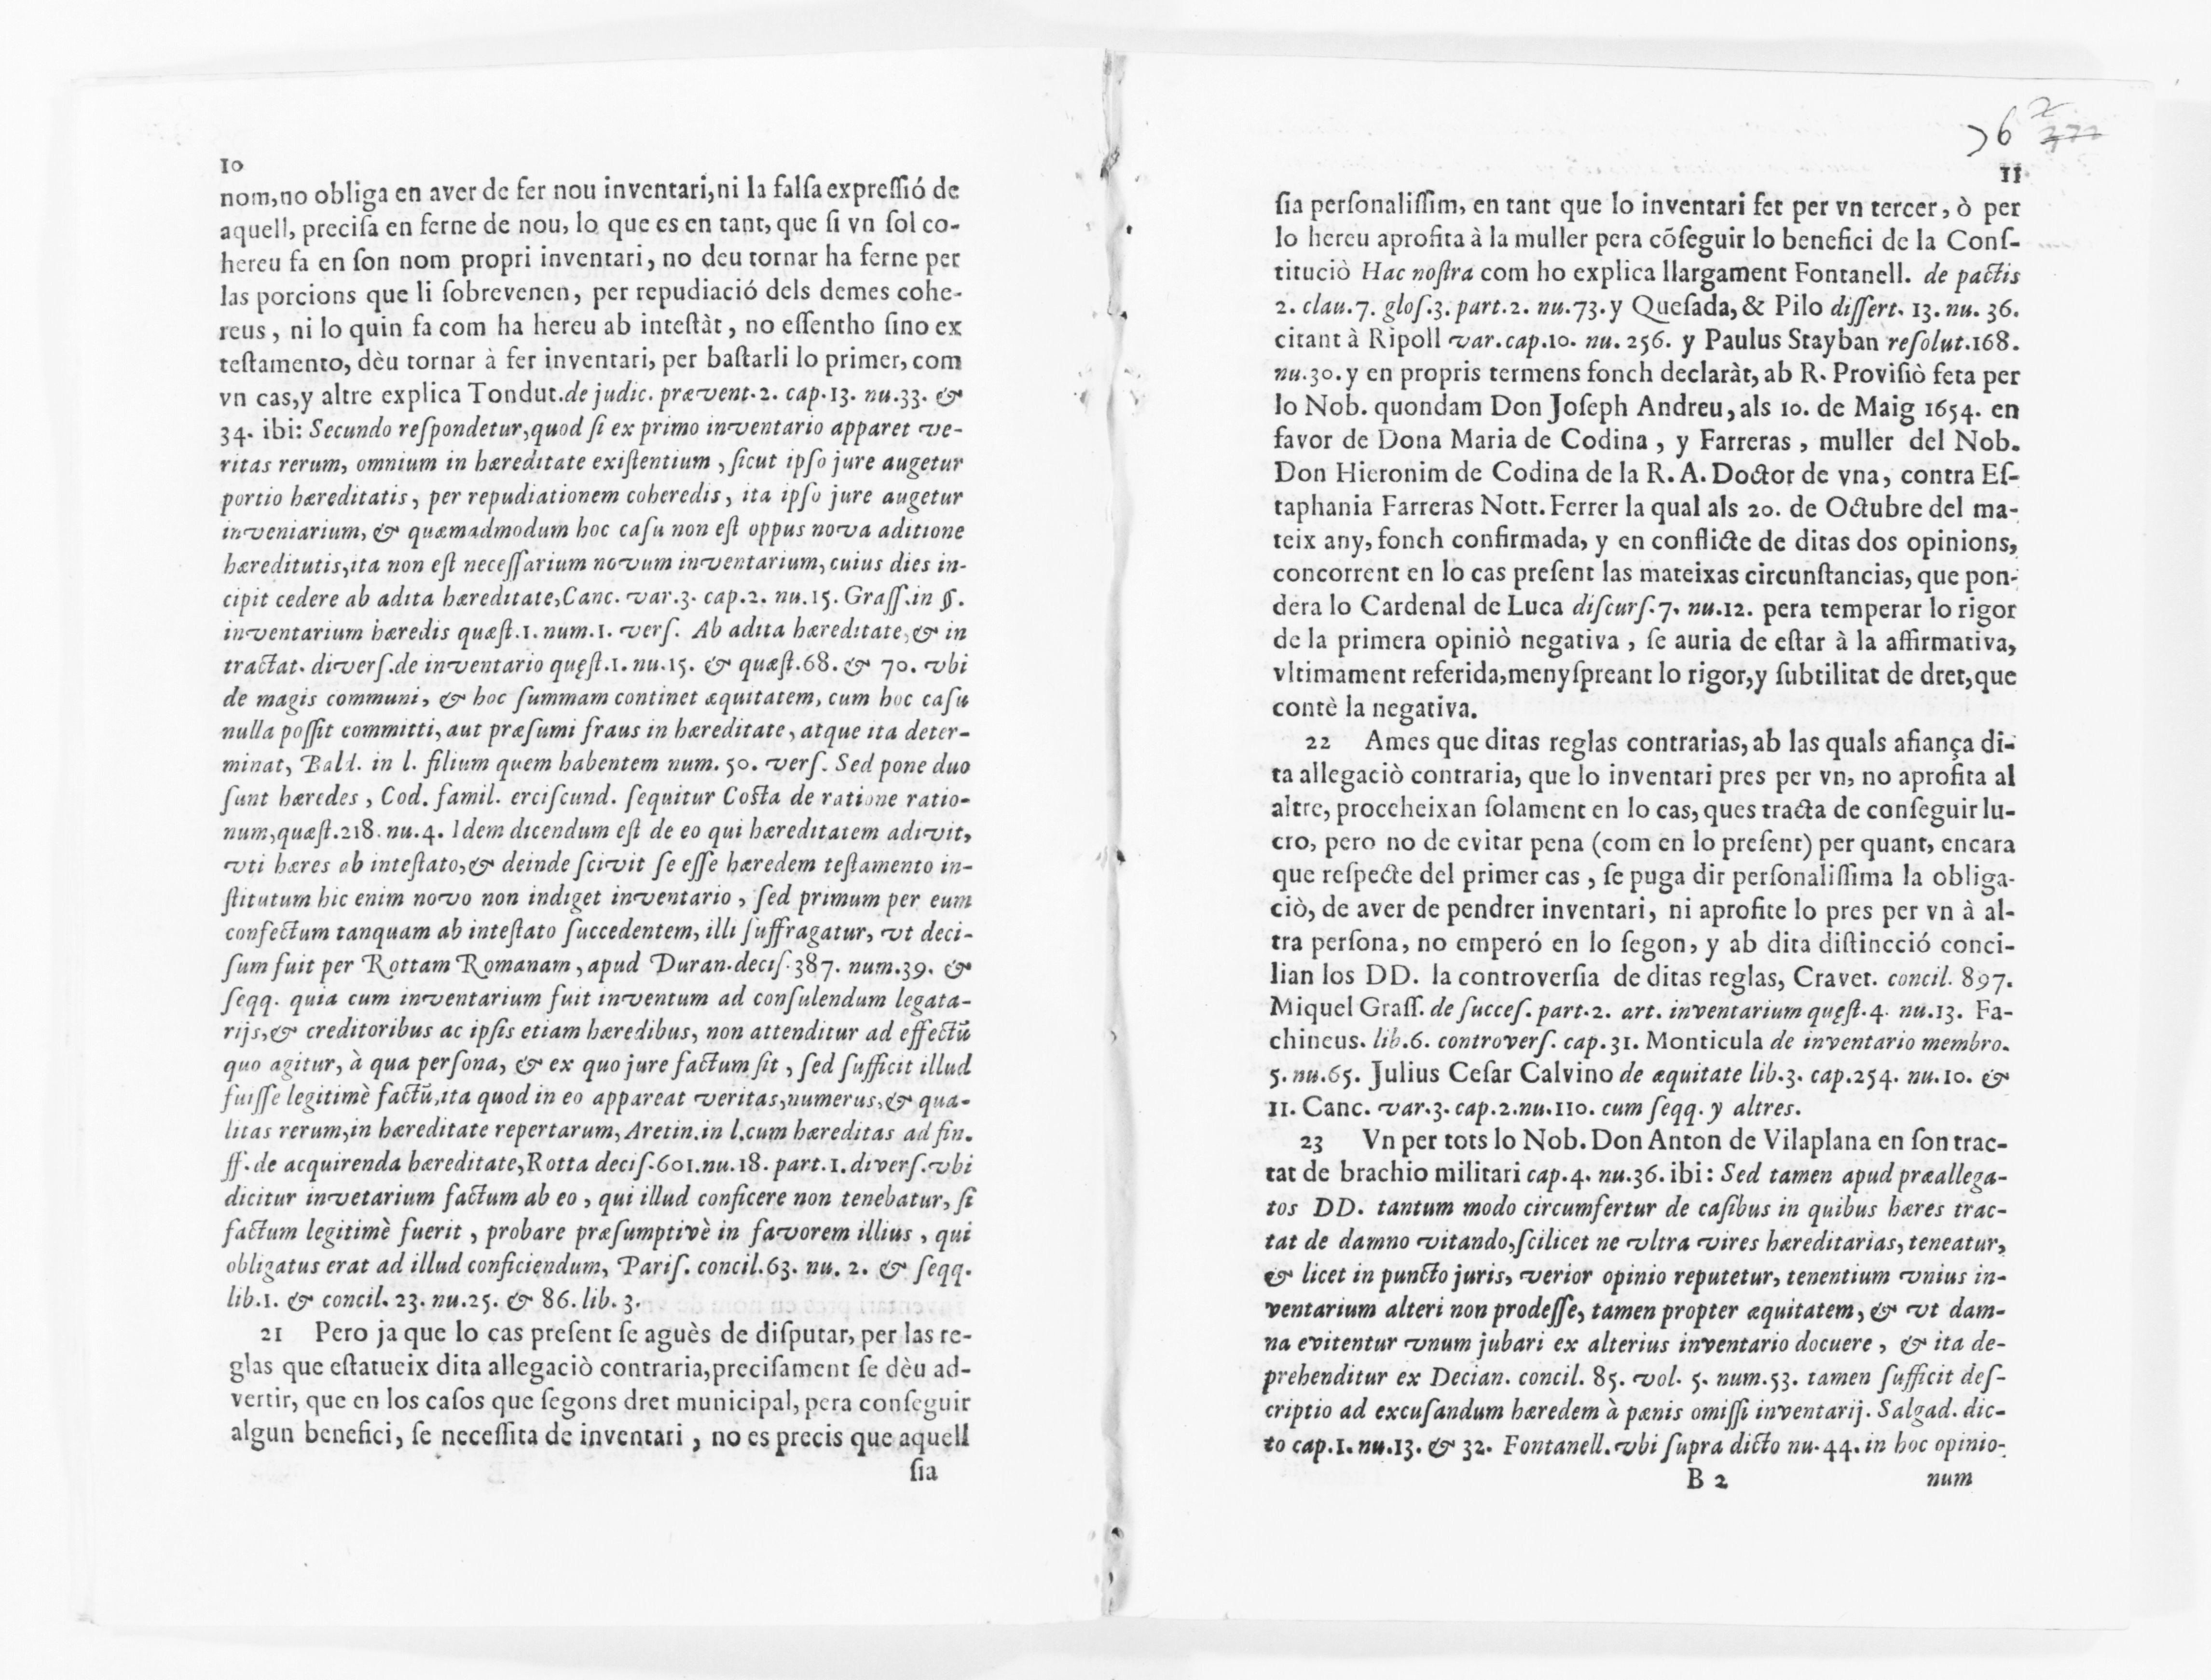 10
nom,no obliga en aver de fer nou inventari,ni la falſa expreſſió de
aquell, preciſa en ferne de nou, lo que es en tant, que ſi vn ſol co-
hereu fa en ſon nom propri inventari, no deu tornar ha ferne per
las porcions que li ſobrevenen, per repudiació dels demes cohe-
reus, ni lo quin fa com ha hereu ab inteſtàt, no eſſentho ſino ex
teſtamento, dèu tornar à fer inventari, per baſtarli lo primer, com
vn cas,y altre explica Tondut.de judic. prævent.2. cap.13. nu.33. &
34. ibi: Secundo reſpondetur,quod ſi ex primo inventario apparet ve-
ritas rerum, omnium in hæreditate exiſtentium, ſicut ipſo jure augetur
portio hæreditatis, per repudiationem coheredis, ita ipſo jure augetur
inveniarium, & quæmadmodum hoc caſu non eſt oppus nova aditione
hæreditutis,ita non eſt neceſſarium novum inventarium, cuius dies in-
cipit cedere ab adita hæreditate,Canc. var.3. cap.2. nu.15. Graſſ.in §.
inventarium hæredis quæſt.1. num.1. verſ. Ab adita hæreditate,& in
tractat. diverſ.de inventario quęſt.1. nu.15. & quæſt.68. & 70. vbi
de magis communi, & hoc ſummam continet æquitatem, cum hoc caſu
nulla poſſit committi, aut præſumi fraus in hæreditate, atque ita deter-
minat, Bald. in l. filium quem habentem num. 50. verſ. Sed pone duo
ſunt hæredes, Cod. famil. erciſcund. ſequitur Coſta de ratione ratio-
num,quæſt.218. nu.4. Idem dicendum eſt de eo qui hæreditatem adivit,
vti hæres ab inteſtato,& deinde ſcivit ſe eſſe hæredem teſtamento in-
ſtitutum hic enim novo non indiget inventario, ſed primum per eum
confectum tanquam ab inteſtato ſuccedentem, illi ſuffragatur, vt deci-
ſum fuit per Rottam Romanam, apud Duran.deciſ.387. num.39. &
ſeqq. quia cum inventarium fuit inventum ad conſulendum legata-
rijs,& creditoribus ac ipſis etiam hæredibus, non attenditur ad effectũ
quo agitur, à qua perſona, & ex quo jure factum ſit, ſed ſufficit illud
fuiſſe legitimè factũ,ita quod in eo appareat veritas,numerus,& qua-
litas rerum,in hæreditate repertarum, Aretin.in l.cum hæreditas ad fin.
ff.de acquirenda hæreditate,Rotta deciſ.601.nu.18. part.1.diverſ.vbi
dicitur invetarium factum ab eo, qui illud conficere non tenebatur, ſi
factum legitimè fuerit, probare præſumptivè in favorem illius, qui
obligatus erat ad illud conficiendum, Pariſ. concil.63. nu. 2. & ſeqq.
lib.1. & concil. 23. nu.25. & 86. lib. 3.
21 Pero ja que lo cas preſent ſe aguès de diſputar, per las re-
glas que eſtatueix dita allegaciò contraria,preciſament ſe dèu ad-
vertir, que en los caſos que ſegons dret municipal, pera conſeguir
algun benefici, ſe neceſſita de inventari, no es precis que aquell
ſia
76
11
ſia perſonaliſſim, en tant que lo inventari fet per vn tercer, ò per
lo hereu aprofita à la muller pera cõſeguir lo benefici de la Conſ-
titució Hac noſtra com ho explica llargament Fontanell. de pactis
2. clau.7. gloſ.3. part.2. nu.73. y Queſada, & Pilo diſſert. 13. nu. 36.
citant à Ripoll var.cap.10. nu. 256. y Paulus Stayban reſolut.168.
nu.30. y en propris termens fonch declaràt, ab R. Proviſiò feta per
lo Nob. quondam Don Joſeph Andreu, als 10. de Maig 1654. en
favor de Dona Maria de Codina, y Farreras, muller del Nob.
Don Hieronim de Codina de la R. A. Doctor de vna, contra Eſ-
taphania Farreras Nott. Ferrer la qual als 20. de Octubre del ma-
teix any, fonch confirmada, y en conflicte de ditas dos opinions,
concorrent en lo cas preſent las mateixas circunſtancias, que pon-
dera lo Cardenal de Luca diſcurſ.7. nu.12. pera temperar lo rigor
de la primera opiniò negativa, ſe auria de eſtar à la affirmativa,
vltimament referida,menyſpreant lo rigor,y ſubtilitat de dret,que
contè la negativa.
22 Ames que ditas reglas contrarias, ab las quals afiança di-
ta allegaciò contraria, que lo inventari pres per vn, no aprofita al
altre, proccheixan ſolament en lo cas, ques tracta de conſeguir lu-
cro, pero no de evitar pena (com en lo preſent) per quant, encara
que reſpecte del primer cas, ſe puga dir perſonaliſſima la obliga-
ciò, de aver de pendrer inventari, ni aprofite lo pres per vn à al-
tra perſona, no emperó en lo ſegon, y ab dita diſtincció conci-
lian los DD. la controverſia de ditas reglas, Cravet. concil. 897.
Miquel Graſſ. de ſucceſ. part.2. art. inventarium quęſt.4. nu.13. Fa-
chineus. lib.6. controverſ. cap.31. Monticula de inventario membro.
5. nu.65. Julius Ceſar Calvino de æquitate lib.3. cap.254. nu.10. &
11. Canc. var.3. cap.2.nu.110. cum ſeqq. y altres.
23 Vn per tots lo Nob. Don Anton de Vilaplana en ſon trac-
tat de brachio militari cap.4. nu.36. ibi: Sed tamen apud præallega-
tos DD. tantum modo circumfertur de caſibus in quibus hæres trac-
tat de damno vitando,ſcilicet ne vltra vires hæreditarias, teneatur,
& licet in puncto juris, verior opinio reputetur, tenentium vnius in-
ventarium alteri non prodeſſe, tamen propter æquitatem, & vt dam-
na evitentur vnum jubari ex alterius inventario docuere, & ita de-
prehenditur ex Decian. concil. 85. vol. 5. num.53. tamen ſufficit deſ-
criptio ad excuſandum hæredem à pænis omiſſi inventarij. Salgad. dic-
to cap.1. nu.13. & 32. Fontanell. vbi ſupra dicto nu.44. in hoc opinio-
B 2 num